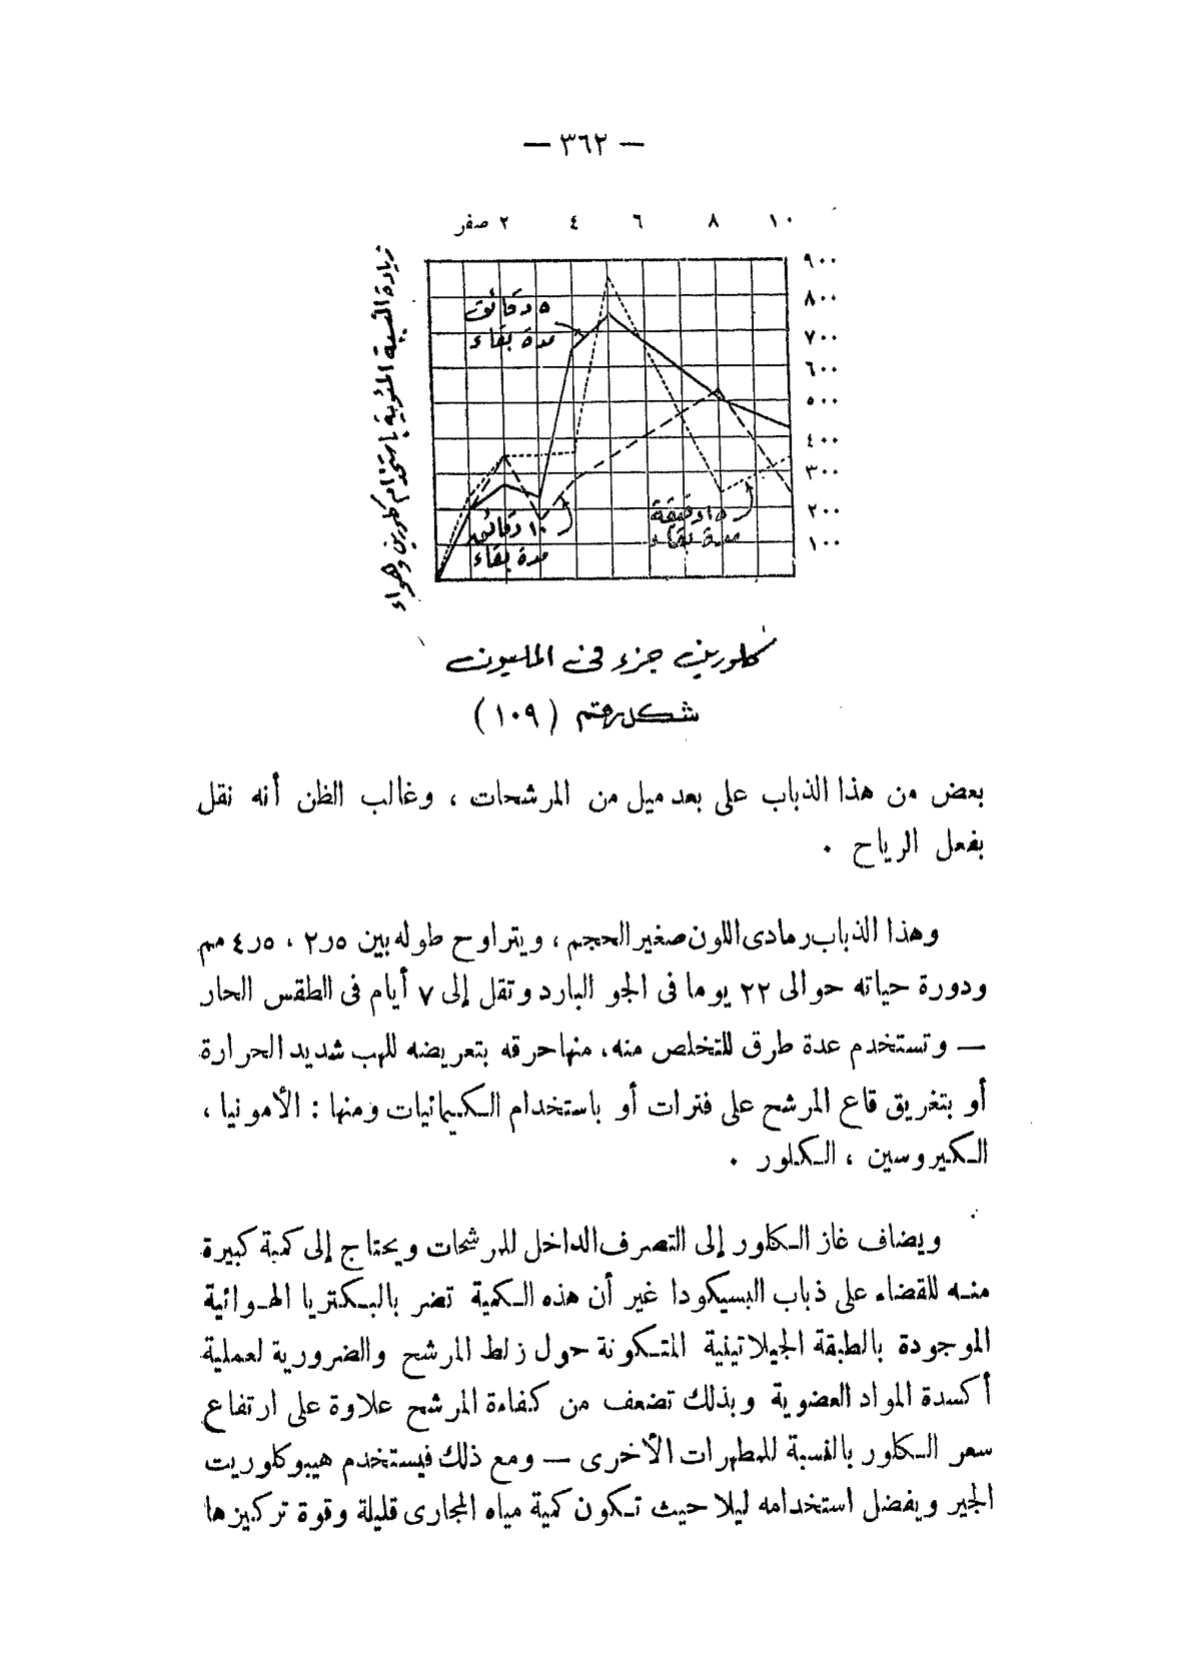 — ٣٦٢ —
صفر ٢ ٤ ٦ ٨ ١٠
٩٠٠
٨٠٠
٧٠٠
٦٠٠
٥٠٠
٤٠٠
٣٠٠
٢٠٠
١٠٠
زيادة النسبة المئوية باستخدام كلورين وهواء
٥ دقائق
مدة بقاء
١٠ دقائق
مدة بقاء
١٥ دقيقة
مدة بقاء
كلورين جزء فى المليون
شكل رقم (١٠٩)
بعض من هذا الذباب على بعد ميل من المرشحات ، وغالب الظن أنه نقل
بفعل الرياح .
وهذا الذباب رمادى اللون صغير الحجم ، ويتراوح طوله بين ٢٫٥ ، ٤٫٥ مم
ودورة حياته حوالى ٢٢ يوما فى الجو البارد وتقل إلى ٧ أيام فى الطقس الحار
— وتستخدم عدة طرق للتخلص منه ، منها حرقه بتعريضه للهب شديد الحرارة
أو بتغريق قاع المرشح على فترات أو باستخدام الكيمائيات ومنها : الأمونيا ،
الكيروسين ، الكلور .
ويضاف غاز الكلور إلى التصرف الداخل للمرشحات ويحتاج إلى كمية كبيرة
منه للقضاء على ذباب البسيكودا غير أن هذه الكمية تضر بالبكتريا الهوائية
الموجودة بالطبقة الجيلاتينية المتكونة حول زلط المرشح والضرورية لعملية
أكسدة المواد العضوية وبذلك تضعف من كفاءة المرشح علاوة على ارتفاع
سعر الكلور بالنسبة للمطهرات الأخرى — ومع ذلك فيستخدم هيبوكلوريت
الجير ويفضل استخدامه ليلا حيث تكون كمية مياه المجارى قليلة وقوة تركيزها